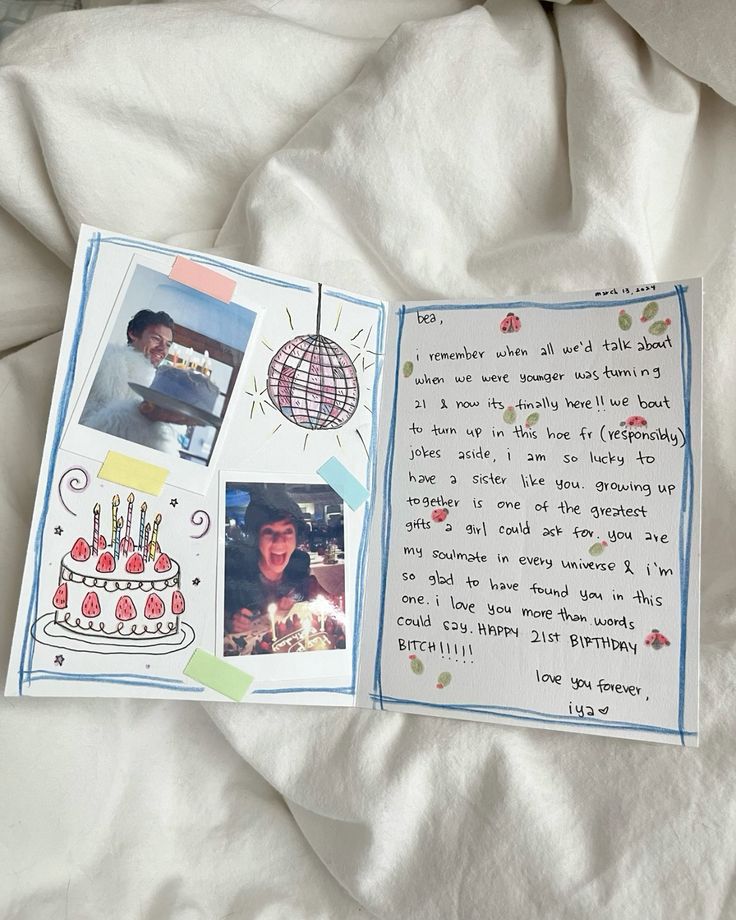 march 13, 2024
bea,
i remember when all we'd talk about
when we were younger was turning
21 & now its finally here!! we bout
to turn up in this hoe fr (responsibly)
jokes aside, i am so lucky to
have a sister like you. growing up
together is one of the greatest
gifts a girl could ask for. you are
my soulmate in every universe & i'm
so glad to have found you in this
one. i love you more than words
could say. HAPPY 21st BIRTHDAY
BITCH!!!!!
love you forever,
iya